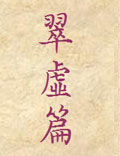 翠虛篇